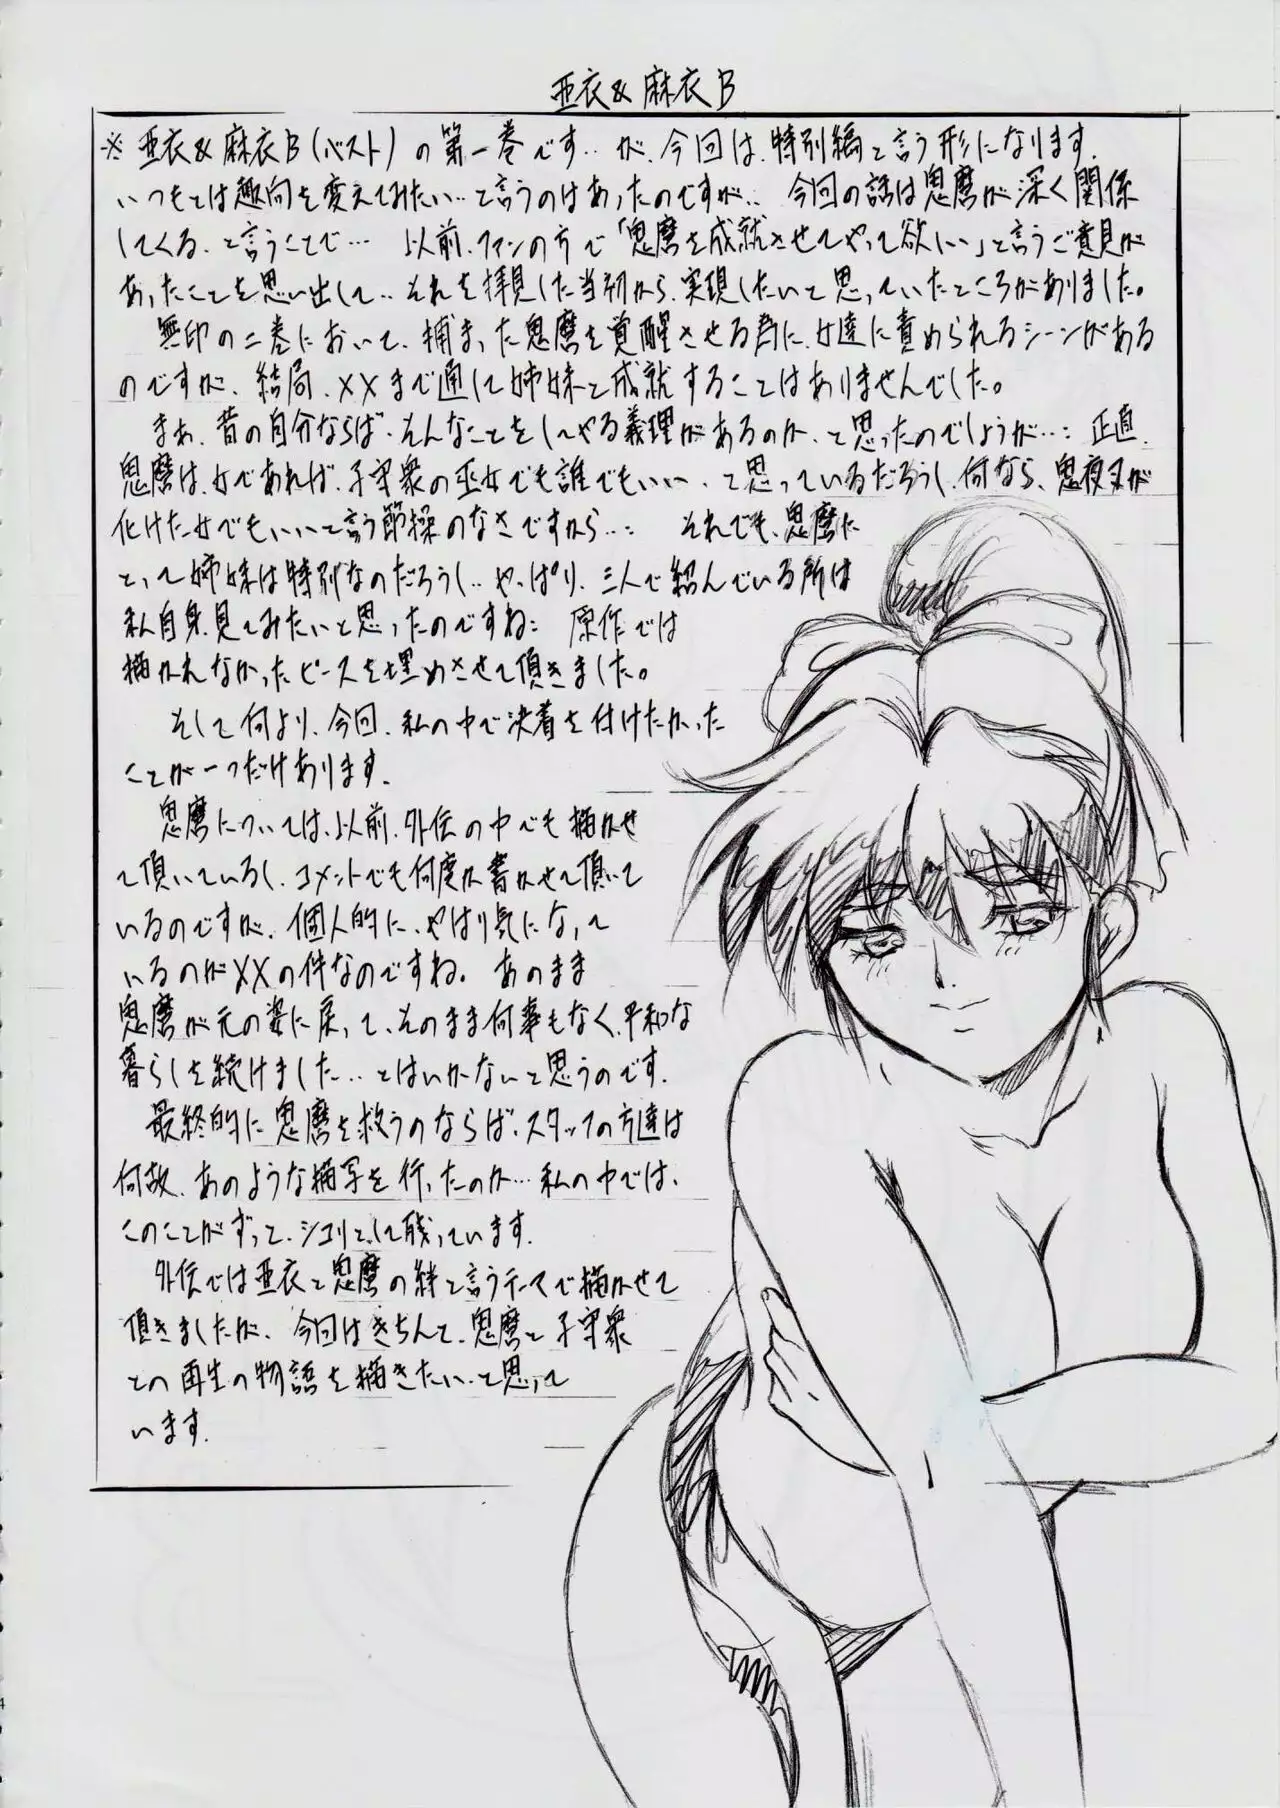 亜衣&麻衣B
※亜衣&麻衣B(ベスト)の第一巻です‥が、今回は、特別編と言う形になります。
いつもとは趣向を変えてみたい‥と言うのはあったのですが‥ 今回の話は鬼麿が深く関係
してくる、と言うことで… 以前、ファンの方で「鬼麿を成就させてやって欲しい」と言うご意見が
あったことを思い出して‥それを拝見した当初から、実現したいと思っていたところがありました。
無印の二巻において、捕まった鬼麿を覚醒させる為に、女達に責められるシーンがある
のですが、結局、XXまで通して姉妹と成就することはありませんでした。
まぁ、昔の自分ならば、そんなことをしてやる義理があるのか、と思ったのでしょうが…: 正直、
鬼麿は、女であれば、子守衆の巫女でも誰でもいい、と思っているだろうし、何なら、鬼夜叉が
化けた女でもいいと言う節操のなさですから…: それでも、鬼麿に
とって姉妹は特別なのだろうし‥やっぱり、三人で絡んでいる所は
私自身、見てみたいと思ったのですね: 原作では
描かれなかったピースを埋めさせて頂きました。
そして何より、今回、私の中で決着を付けたかった
ことが一つだけあります。
鬼麿については、以前、外伝の中でも描かせ
て頂いているし、コメントでも何度か書かせて頂いて
いるのですが、個人的に、やはり気になって
いるのがXXの件なのですね。あのまま
鬼麿が元の姿に戻って、そのまま何事もなく、平和な
暮らしを続けました‥とはいかないと思うのです。
最終的に鬼麿を救うのならば、スタッフの方達は
何故、あのような描写を行ったのか…私の中では、
このことがずっと、シコリとして残っています。
外伝では亜衣と鬼麿の絆と言うテーマで描かせて
頂きましたが、今回はきちんと、鬼麿と子守衆
との再生の物語を描きたい‥と思って
います。
4